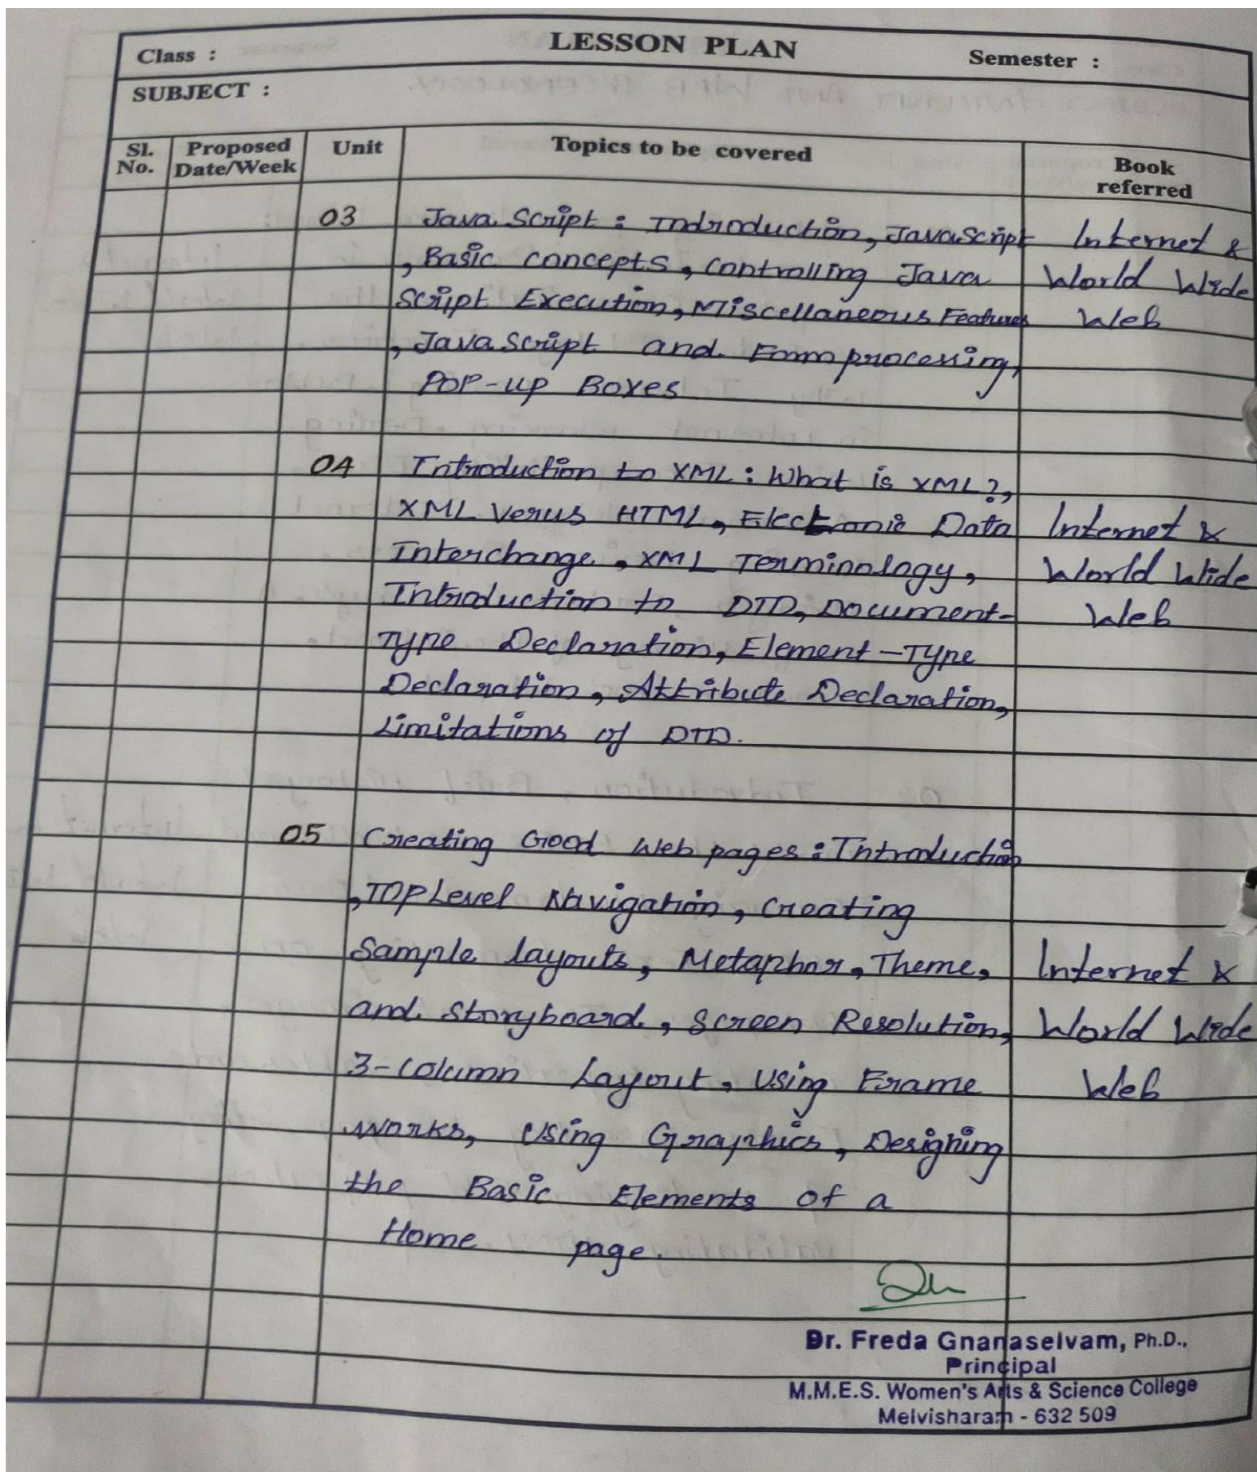 LESSON PLAN
Class :
Semester :
SUBJECT :
Sl. No.
Proposed Date/Week
Unit
Topics to be covered
Book referred
03 Java Script : Indroduction, JavaScript Internet &
, Basic concepts, controlling Java World Wide
Script Execution, Miscellaneous Features Web
, Java Script and Form processing,
POP-up Boxes
04 Introduction to XML : What is XML?,
XML Verus HTML, Electronic Data Internet &
Interchange, XML Terminology, World Wide
Introduction to DTD, Document- Web
Type Declaration, Element-Type
Declaration, Attribute Declaration,
Limitations of DTD.
05 Creating Good Web pages : Introduction
, TOP Level Navigation, Creating
Sample layouts, Metaphor, Theme, Internet &
and Storyboard, Screen Resolution, World Wide
3-column Layout, Using Frame Web
works, Using Graphics, Designing
the Basic Elements of a
Home page.
Dr. Freda Gnanaselvam, Ph.D.,
Principal
M.M.E.S. Women's Arts & Science College
Melvisharam - 632 509